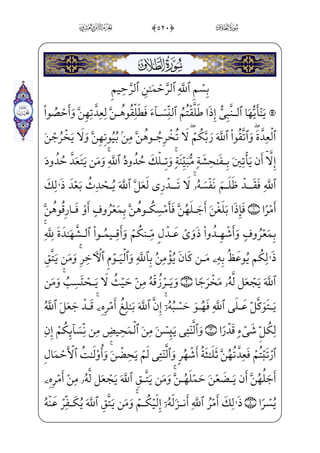 سُورَةُ الطَّلَاقِ ﴿٥٢٠﴾ الجُزْءُ الثَّامِنُ وَالعِشْرُونَ
سُورَةُ الطَّلَاقِ
بِسْمِ ٱللَّهِ ٱلرَّحْمَٰنِ ٱلرَّحِيمِ
۞ يَٰٓأَيُّهَا ٱلنَّبِىُّ إِذَا طَلَّقْتُمُ ٱلنِّسَآءَ فَطَلِّقُوهُنَّ لِعِدَّتِهِنَّ وَأَحْصُوا۟
ٱلْعِدَّةَ ۖ وَٱتَّقُوا۟ ٱللَّهَ رَبَّكُمْ ۖ لَا تُخْرِجُوهُنَّ مِنۢ بُيُوتِهِنَّ وَلَا يَخْرُجْنَ
إِلَّآ أَن يَأْتِينَ بِفَٰحِشَةٍ مُّبَيِّنَةٍ ۚ وَتِلْكَ حُدُودُ ٱللَّهِ ۚ وَمَن يَتَعَدَّ حُدُودَ
ٱللَّهِ فَقَدْ ظَلَمَ نَفْسَهُۥ ۚ لَا تَدْرِى لَعَلَّ ٱللَّهَ يُحْدِثُ بَعْدَ ذَٰلِكَ
أَمْرًا ۝١ فَإِذَا بَلَغْنَ أَجَلَهُنَّ فَأَمْسِكُوهُنَّ بِمَعْرُوفٍ أَوْ فَارِقُوهُنَّ
بِمَعْرُوفٍ وَأَشْهِدُوا۟ ذَوَىْ عَدْلٍ مِّنكُمْ وَأَقِيمُوا۟ ٱلشَّهَٰدَةَ لِلَّهِ ۚ
ذَٰلِكُمْ يُوعَظُ بِهِۦ مَن كَانَ يُؤْمِنُ بِٱللَّهِ وَٱلْيَوْمِ ٱلْءَاخِرِ ۚ وَمَن يَتَّقِ
ٱللَّهَ يَجْعَل لَّهُۥ مَخْرَجًا ۝٢ وَيَرْزُقْهُ مِنْ حَيْثُ لَا يَحْتَسِبُ ۚ وَمَن
يَتَوَكَّلْ عَلَى ٱللَّهِ فَهُوَ حَسْبُهُۥٓ ۚ إِنَّ ٱللَّهَ بَٰلِغُ أَمْرِهِۦ ۚ قَدْ جَعَلَ ٱللَّهُ
لِكُلِّ شَىْءٍ قَدْرًا ۝٣ وَٱلَّٰٓـِٔى يَئِسْنَ مِنَ ٱلْمَحِيضِ مِن نِّسَآئِكُمْ إِنِ
ٱرْتَبْتُمْ فَعِدَّتُهُنَّ ثَلَٰثَةُ أَشْهُرٍ وَٱلَّٰٓـِٔى لَمْ يَحِضْنَ ۚ وَأُو۟لَٰتُ ٱلْأَحْمَالِ
أَجَلُهُنَّ أَن يَضَعْنَ حَمْلَهُنَّ ۚ وَمَن يَتَّقِ ٱللَّهَ يَجْعَل لَّهُۥ مِنْ أَمْرِهِۦ
يُسْرًا ۝٤ ذَٰلِكَ أَمْرُ ٱللَّهِ أَنزَلَهُۥٓ إِلَيْكُمْ ۚ وَمَن يَتَّقِ ٱللَّهَ يُكَفِّرْ عَنْهُ